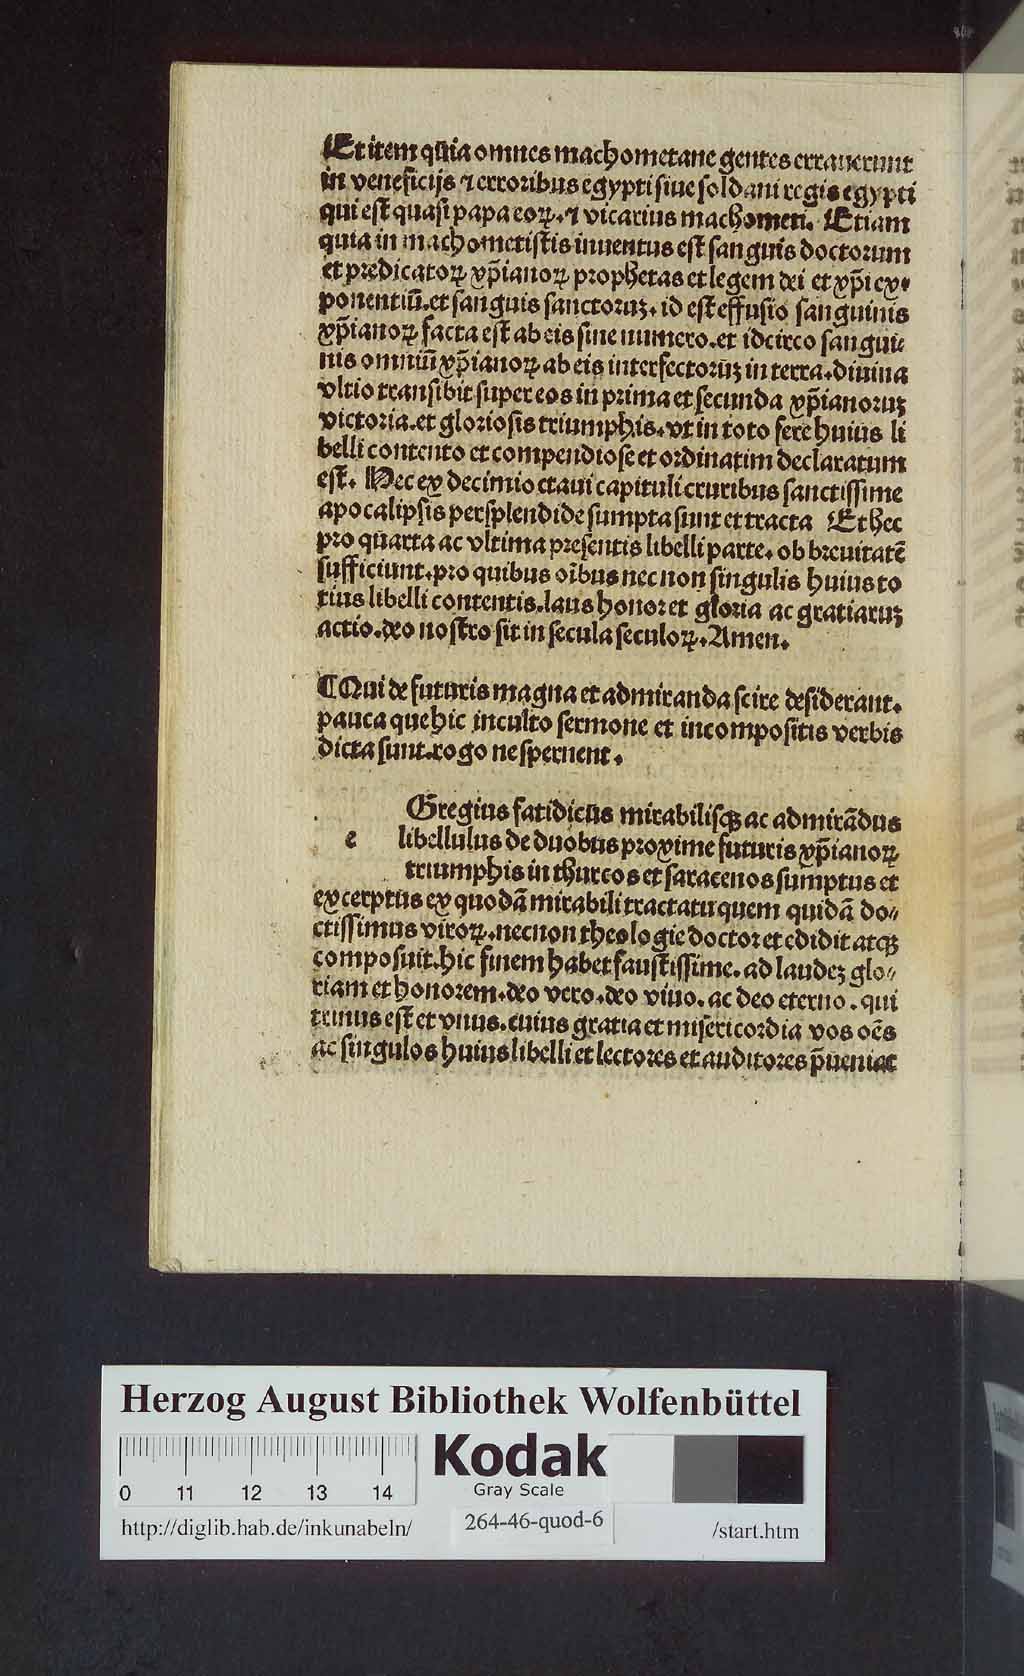 Et item quia omnes machometane gentes errauerunt
in veneficijs ⁊ erroribus egypti siue soldani regis egypti
qui est quasi papa eoꝝ. ⁊ vicarius machometi. Etiam
quia in machometistis inuentus est sanguis doctorum
et predicatoꝝ xp̄ianoꝝ prophetas et legem dei et xp̄i ex⸗
ponentiū. et sanguis sanctoruꝫ. id est effusio sanguinis
xp̄ianoꝝ facta est ab eis sine numero. et idcirco sangui⸗
nis omniū xp̄ianoꝝ ab eis interfectorūꝫ in terra. diuina
vltio transibit super eos in prima et secunda xp̄ianoruꝫ
victoria. et gloriosis triumphis. vt in toto fere huius li
belli contento et compendiose et ordinatim declaratum
est. Hec ex decimio ctaui capituli cruribus sanctissime
apocalipsis persplendide sumpta sunt et tracta Et hec
pro quarta ac vltima presentis libelli parte. ob breuitatē
sufficiunt. pro quibus oībus nec non singulis huius to
tius libelli contentis. laus honor et gloria ac gratiaruꝫ
actio. deo nostro sit in secula seculoꝝ. Amen.
¶ Qui de futuris magna et admiranda scire desiderant.
pauca que hic inculto sermone et incompositis verbis
dicta sunt. rogo ne spernent.
Gregius fatidicus mirabilisqꝫ ac admirādus
e libellulus de duobus proxime futuris xp̄ianoꝝ
triumphis in thurcos et saracenos sumptus et
excerptus ex quodā mirabili tractatu quem quidā do⸗
ctissimus viroꝝ. necnon theologie doctor et edidit atqꝫ
composuit. hic finem habet faustissime. ad laudeꝫ glo⸗
riam et honorem. deo vero. deo viuo. ac deo eterno. qui
trinus est et vnus. cuius gratia et misericordia vos oēs
ac singulos huius libelli et lectores et auditores p̄ueniat
Herzog August Bibliothek Wolfenbüttel
Kodak
Gray Scale
0 11 12 13 14
264-46-quod-6
http://diglib.hab.de/inkunabeln/ /start.htm